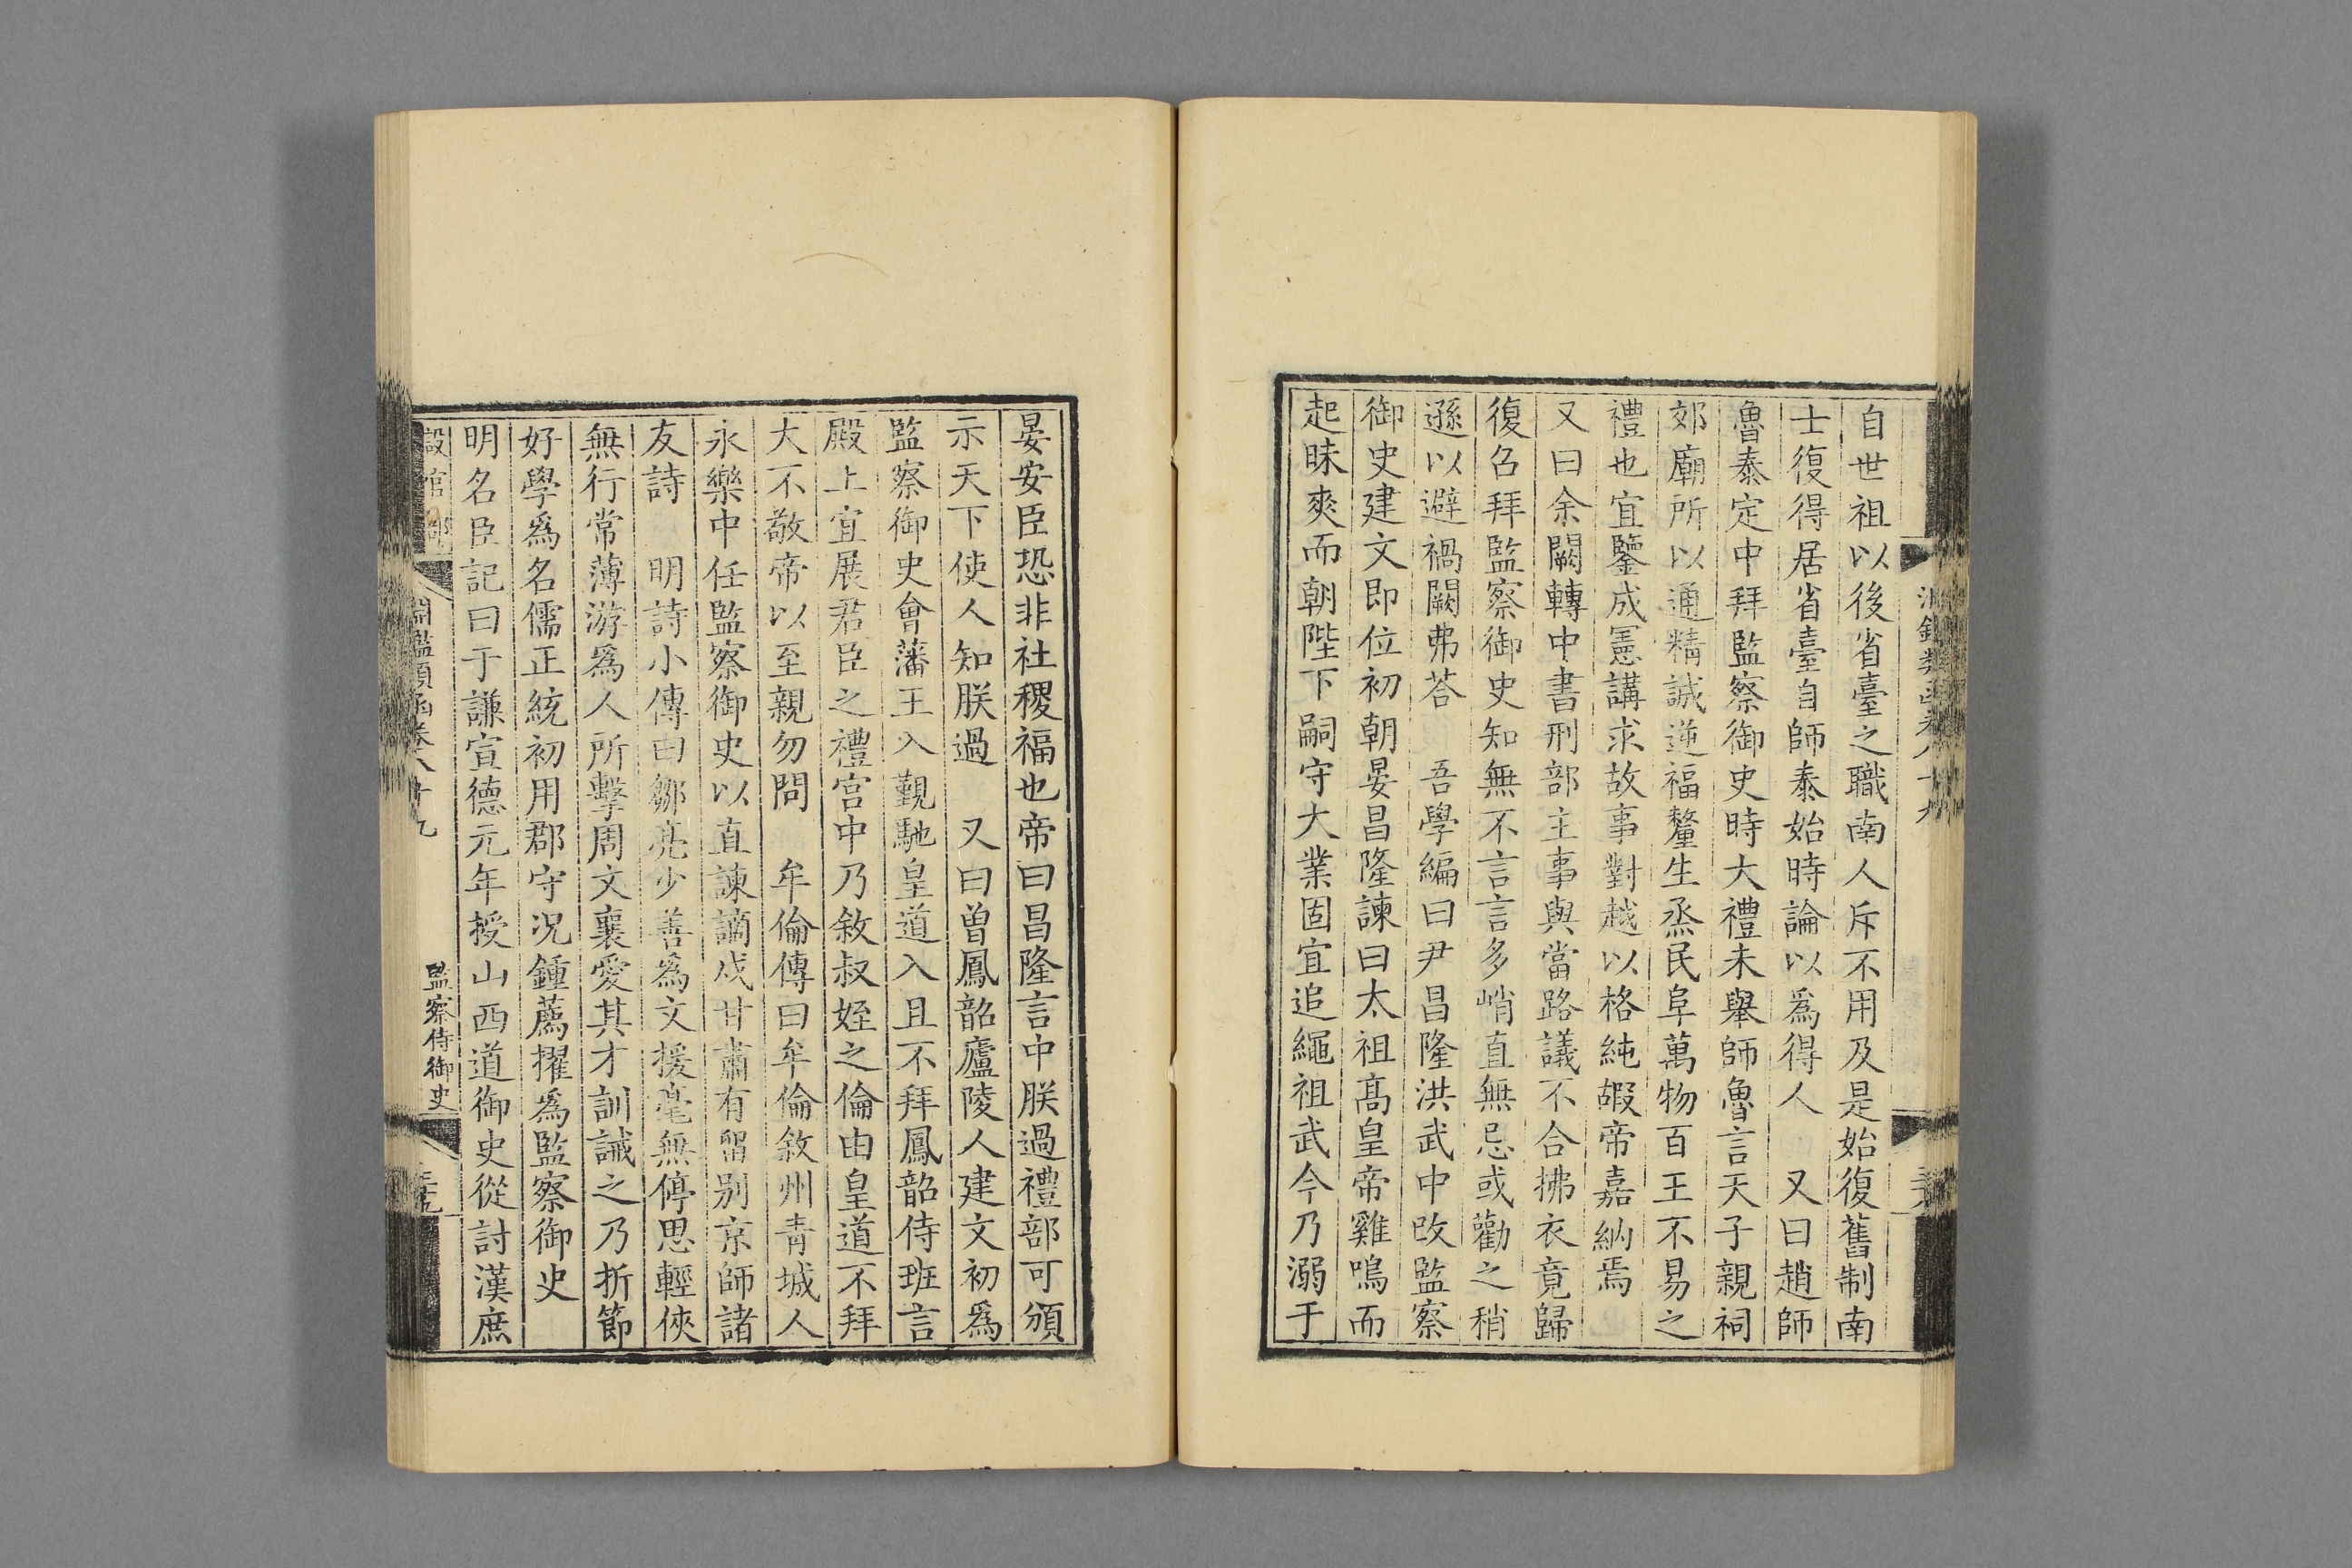 自世祖以後省臺之職南人斥不用及是始復舊制南
士復得居省臺自師泰始時論以爲得人　又曰趙師
魯泰定中拜監察御史時大禮未舉師魯言天子親祠
郊廟所以通精誠逆福釐生烝民阜萬物百王不易之
禮也宜鑒成憲講求故事對越以格純嘏帝嘉納焉
又曰余闕轉中書刑部主事與當路議不合拂衣竟歸
復召拜監察御史知無不言言多峭直無忌或勸之稍
遜以避禍闕弗荅　吾學編曰尹昌隆洪武中改監察
御史建文即位初朝晏昌隆諫曰太祖髙皇帝雞鳴而
起昧爽而朝陛下嗣守大業固宜追繩祖武今乃溺于
晏安臣恐非社稷福也帝曰昌隆言中朕過禮部可頒
示天下使人知朕過　又曰曾鳳韶廬陵人建文初爲
監察御史會藩王入覲馳皇道入且不拜鳳韶侍班言
殿上宜展君臣之禮宫中乃敘叔姪之倫由皇道不拜
大不敬帝以至親勿問　牟倫傳曰牟倫敘州青城人
永樂中任監察御史以直諫謫戍甘肅有留别京師諸
友詩　明詩小傳曰鄒亮少善爲文援毫無停思輕俠
無行常薄游爲人所擊周文襄愛其才訓誡之乃折節
好學爲名儒正統初用郡守况鍾薦擢爲監察御史
明名臣記曰于謙宣德元年授山西道御史從討漢庶
淵鑑類函卷八十九
監察侍御史